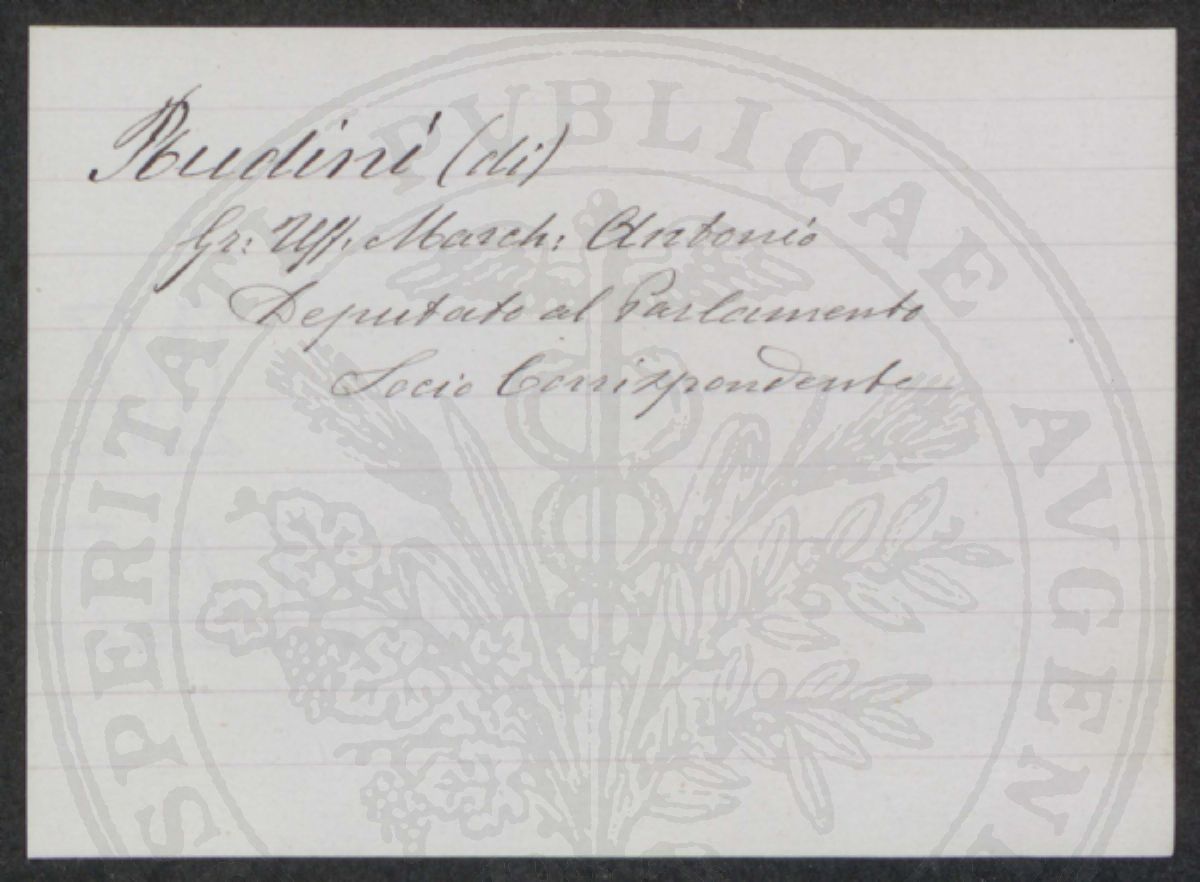 Rudinì (di)
Gr: Uff. March: Antonio
Deputato al Parlamento
Socio Corrispondente
PROSPERITATI PVBLICAE AVGENDAE